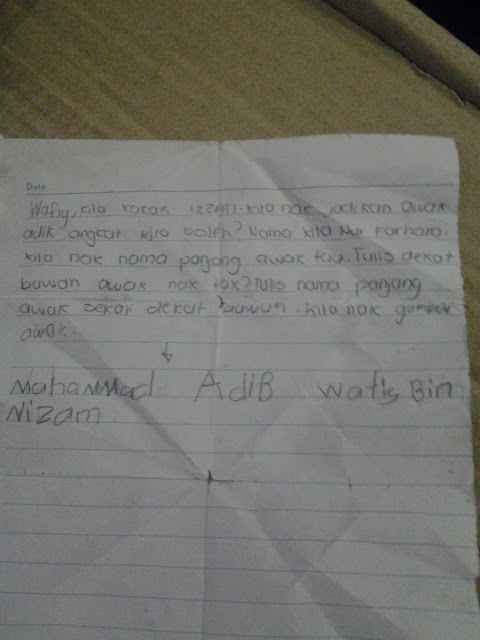 Date
Wafiy, kita kakak IZZATI. Kita nak jadikan awak
adik angkat kita boleh? Nama kita Nur Farhana.
kita nak nama panjang awak tau. Tulis dekat
bawah awak nak tak? Tulis nama panjang
awak sekali dekat bawah. Kita nak gambar
awak.
MuhaMMad AdiB Wafiy Bin
Nizam